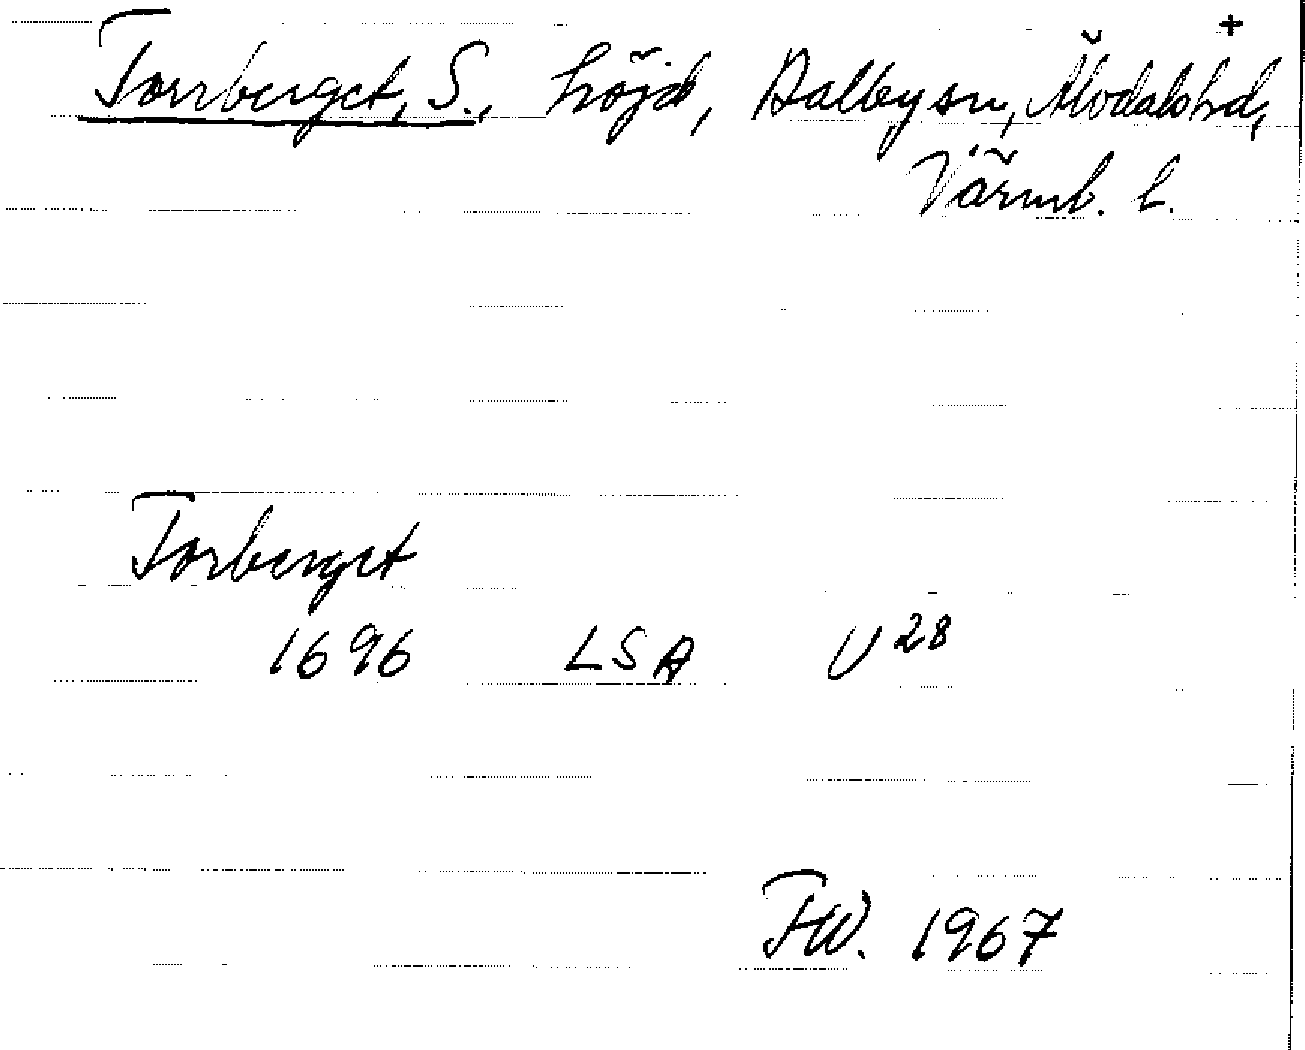 +
Torrberget, S., höjd, Dalby sn, Älvdals hd,
Värml. l.
Torberget
1696 LSA U 28
FW. 1967